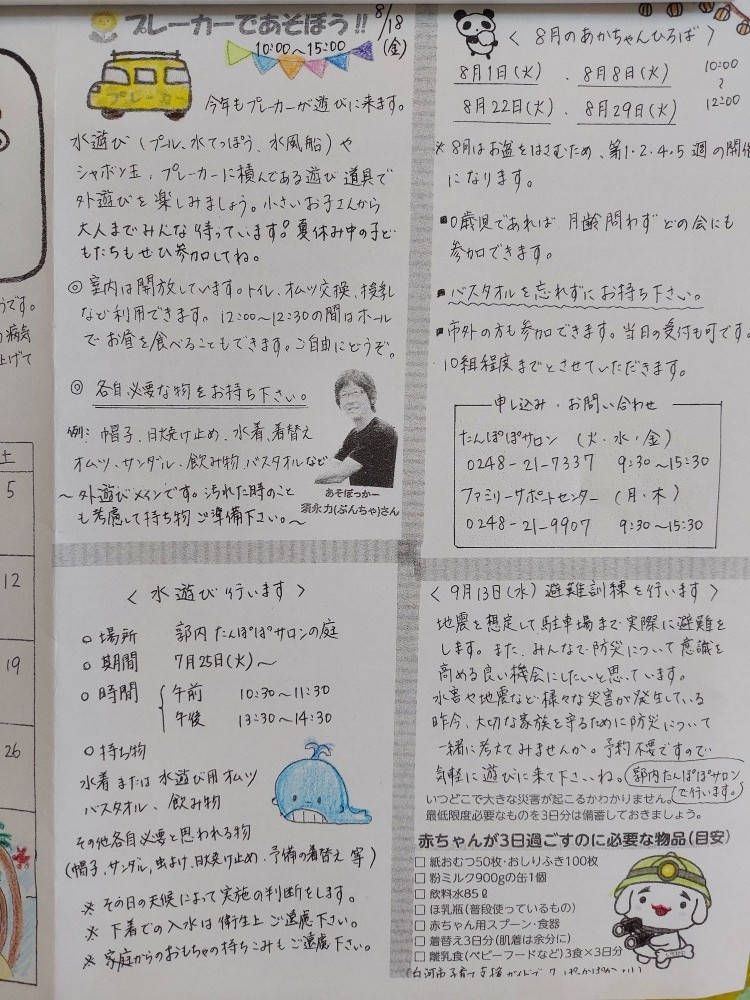 プレーカーであそぼう!!
8/18
(金)
10:00～15:00
プレーカー
今年もプレーカーが遊びに来ます。
水遊び(プール、水てっぽう、水風船)や
シャボン玉、プレーカーに積んである遊び道具で
外遊びを楽しみましょう。小さいお子さんから
大人までみんな待っています!夏休み中の子ど
もたちもぜひ参加してね。
◎室内は開放しています。トイレ、オムツ交換、授乳
など利用できます。12:00～12:30の間はホール
でお昼を食べることもできます。ご自由にどうぞ。
◎ 各自必要な物をお持ち下さい。
例: 帽子、日焼け止め、水着、着替え
オムツ、サンダル、飲み物、バスタオルなど
～外遊びメインです。汚れた時のこと
も考慮して持ち物ご準備下さい。～
あそぼっかー
須永力(ぶんちゃ)さん
〈 8月のあかちゃんひろば 〉
8月1日(火)、8月8日(火)
8月22日(火)、8月29日(火)
10:00
～
12:00
※8月はお盆をはさむため、第1・2・4・5週の開催
になります。
■0歳児であれば 月齢問わずどの会にも
参加できます。
■バスタオルを忘れずにお持ち下さい。
■市外の方も参加できます。当日の受付も可です。
10組程度までとさせていただきます。
申し込み・お問い合わせ
たんぽぽサロン (火・水・金)
0248-21-7337 9:30～15:30
ファミリーサポートセンター (月・木)
0248-21-9907 9:30～15:30
〈 水遊び行います 〉
○場所 郭内たんぽぽサロンの庭
○期間 7月25日(火)～
○時間 午前 10:30～11:30
午後 13:30～14:30
○持ち物
水着または水遊び用オムツ
バスタオル、飲み物
その他各自必要と思われる物
(帽子、サンダル、虫よけ、日焼け止め、予備の着替え 等)
※ その日の天候によって実施の判断をします。
※ 下着での入水は衛生上ご遠慮下さい。
※ 家庭からのおもちゃの持ちこみもご遠慮下さい。
〈 9月13日(水) 避難訓練を行います 〉
地震を想定して駐車場まで実際に避難を
します。また、みんなで防災について意識を
高める良い機会にしたいと思っています。
水害や地震など様々な災害が発生している
昨今、大切な家族を守るために防災について
一緒に考えてみませんか。予約不要ですので
気軽に遊びに来て下さいね。(郭内たんぽぽサロン
で行います。)
いつどこで大きな災害が起こるかわかりません。
最低限度必要なものを3日分は備蓄しておきましょう。
赤ちゃんが3日過ごすのに必要な物品(目安)
□ 紙おむつ50枚・おしりふき100枚
□ 粉ミルク900gの缶1個
□ 飲料水85ℓ
□ ほ乳瓶(普段使っているもの)
□ 赤ちゃん用スプーン・食器
□ 着替え3日分(肌着は余分に)
□ 離乳食(ベビーフードなど)3食×3日分
(白河市子育て支援ガイドブック
うです。
病気
上げて
土
5
12
19
26